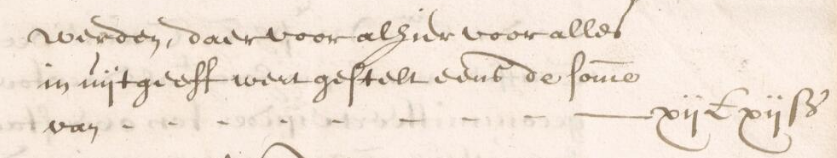 werden, daervoor alhier voor alles
in uijtgeeff wert gestelt eens de some
van - - - - - - - xij £ xij ß